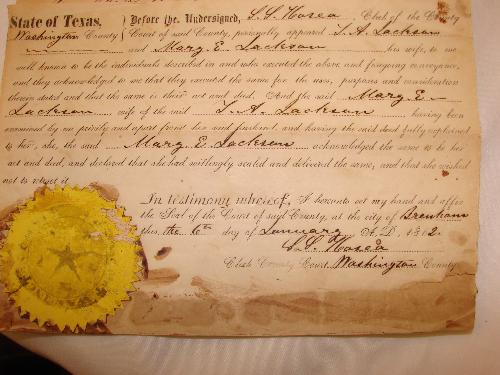 State of Texas, Before the Undersigned, S. S. Hosea, Clerk of the County
Washington County Court of said County, personally appeared T. A. Jackson
and Mary E. Jackson his wife, to me
well known to be the individuals described in and who executed the above and foregoing conveyance,
and they acknowledged to me that they executed the same for the uses, purposes and consideration
therein stated and that the same is their act and deed. And the said Mary E
Jackson wife of the said T. A. Jackson having been
examined by me privily and apart from her said husband, and having the said deed fully explained
to her, she, the said Mary E. Jackson acknowledged the same to be her
act and deed, and declared that she had willingly sealed and delivered the same, and that she wished
not to retract it.
In testimony whereof, I hereunto set my hand and affix
the Seal of the Court of said County, at the city of Brenham
this the 6th day of January A. D.
S. S. Hosea
Clerk County Court, Washington County